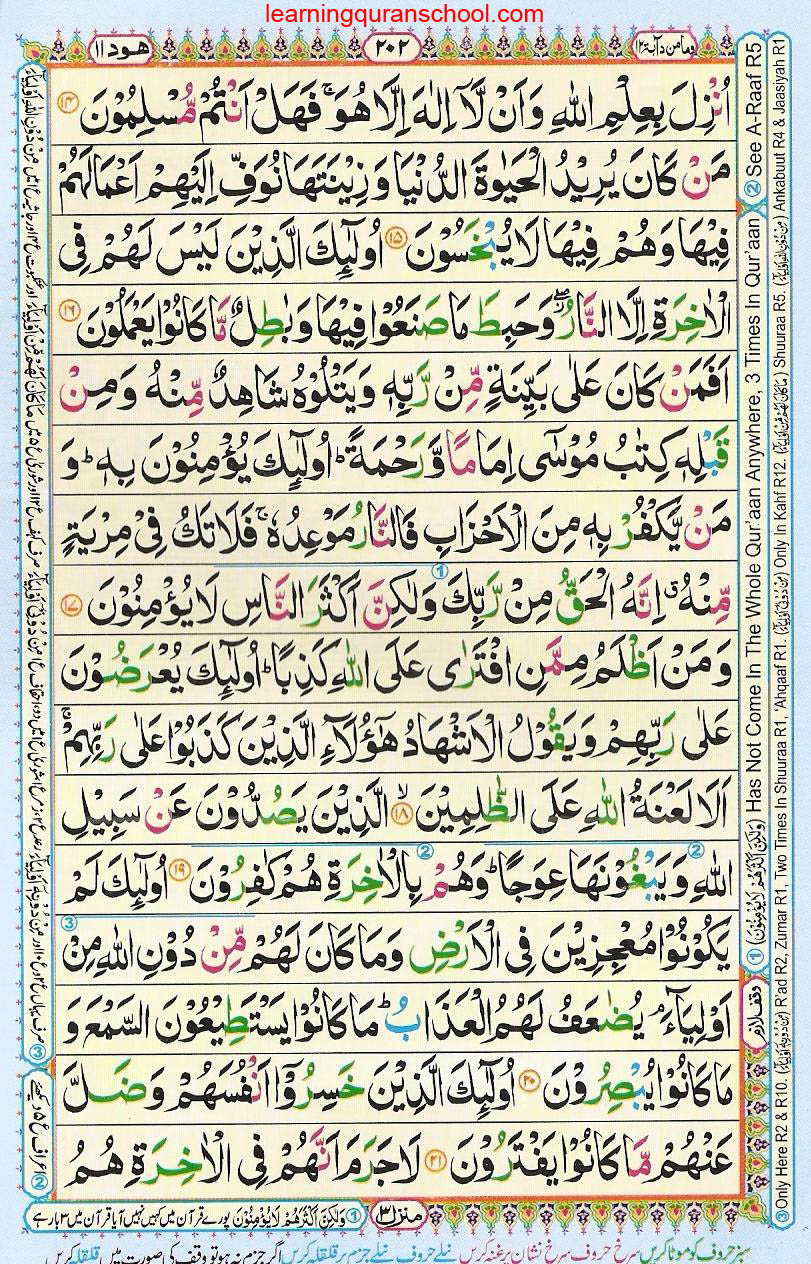 learningquranschool.com
وما من دآبة ١٢
٢٠٢
هود ١١
اُنْزِلَ بِعِلْمِ اللّٰهِ وَاَنْ لَّاۤ اِلٰهَ اِلَّا هُوَ ۚ فَهَلْ اَنْتُمْ مُّسْلِمُوْنَ ۝۱۴
مَنْ كَانَ يُرِيْدُ الْحَيٰوةَ الدُّنْيَا وَزِيْنَتَهَا نُوَفِّ اِلَيْهِمْ اَعْمَالَهُمْ
فِيْهَا وَهُمْ فِيْهَا لَا يُبْخَسُوْنَ ۝۱۵ اُولٰٓئِكَ الَّذِيْنَ لَيْسَ لَهُمْ فِى
الْاٰخِرَةِ اِلَّا النَّارُ ۖ وَحَبِطَ مَا صَنَعُوْا فِيْهَا وَبٰطِلٌ مَّا كَانُوْا يَعْمَلُوْنَ ۝۱۶
اَفَمَنْ كَانَ عَلٰى بَيِّنَةٍ مِّنْ رَّبِّهٖ وَيَتْلُوْهُ شَاهِدٌ مِّنْهُ وَمِنْ
قَبْلِهٖ كِتٰبُ مُوْسٰٓى اِمَامًا وَّرَحْمَةً ؕ اُولٰٓئِكَ يُؤْمِنُوْنَ بِهٖ ؕ وَ
مَنْ يَّكْفُرْ بِهٖ مِنَ الْاَحْزَابِ فَالنَّارُ مَوْعِدُهٗ ۚ فَلَا تَكُ فِىْ مِرْيَةٍ
مِّنْهُ ۗ اِنَّهُ الْحَقُّ مِنْ رَّبِّكَ وَلٰكِنَّ اَكْثَرَ النَّاسِ لَا يُؤْمِنُوْنَ ۝۱۷
وَمَنْ اَظْلَمُ مِمَّنِ افْتَرٰى عَلَى اللّٰهِ كَذِبًا ؕ اُولٰٓئِكَ يُعْرَضُوْنَ
عَلٰى رَبِّهِمْ وَيَقُوْلُ الْاَشْهَادُ هٰٓؤُلَآءِ الَّذِيْنَ كَذَبُوْا عَلٰى رَبِّهِمْ ۚ
اَلَا لَعْنَةُ اللّٰهِ عَلَى الظّٰلِمِيْنَ ۙ۝۱۸ الَّذِيْنَ يَصُدُّوْنَ عَنْ سَبِيْلِ
اللّٰهِ وَيَبْغُوْنَهَا عِوَجًا ؕ وَهُمْ بِالْاٰخِرَةِ هُمْ كٰفِرُوْنَ ۝۱۹ اُولٰٓئِكَ لَمْ
يَكُوْنُوْا مُعْجِزِيْنَ فِى الْاَرْضِ وَمَا كَانَ لَهُمْ مِّنْ دُوْنِ اللّٰهِ مِنْ
اَوْلِيَآءَ ۘ يُضٰعَفُ لَهُمُ الْعَذَابُ ؕ مَا كَانُوْا يَسْتَطِيْعُوْنَ السَّمْعَ وَ
مَا كَانُوْا يُبْصِرُوْنَ ۝۲۰ اُولٰٓئِكَ الَّذِيْنَ خَسِرُوْٓا اَنْفُسَهُمْ وَضَلَّ
عَنْهُمْ مَّا كَانُوْا يَفْتَرُوْنَ ۝۲۱ لَا جَرَمَ اَنَّهُمْ فِى الْاٰخِرَةِ هُمُ
① (وَلٰكِنَّ اَكْثَرَهُمْ لَا يُؤْمِنُوْنَ) Has Not Come In The Whole Qur'aan Anywhere, 3 Times In Qur'aan
② See A-Raaf R5
③ Only Here R2 & R10. (مِنْ دُوْنِهٖٓ اَوْلِيَآءَ) R'ad R2, Zumar R1, Two Times In Shuuraa R1, 'Ahqaaf R1. (مِنْ دُوْنِىْٓ اَوْلِيَآءَ) Only In Kahf R12. (مَا كَانَ لَهُمْ مِّنْ اَوْلِيَآءَ) Shuuraa R5. (مِنْ دُوْنِ اللّٰهِ اَوْلِيَآءَ) Ankabuut R4 & Jaasiyah R1
وقف لازم
② اعراف ع ۵ دیکھئے
منزل ٣
① وَلٰكِنَّ اَكْثَرَهُمْ لَا يُؤْمِنُوْنَ پورے قرآن میں کہیں نہیں آیا قرآن میں ۳ بار ہے
سبز حروف کو موٹا کریں سرخ حروف سرخ نشان پر غنہ کریں نیلے حروف نیلے جزم پر قلقلہ کریں اگر جزم نہ ہو تو وقف کی صورت میں قلقلہ کریں